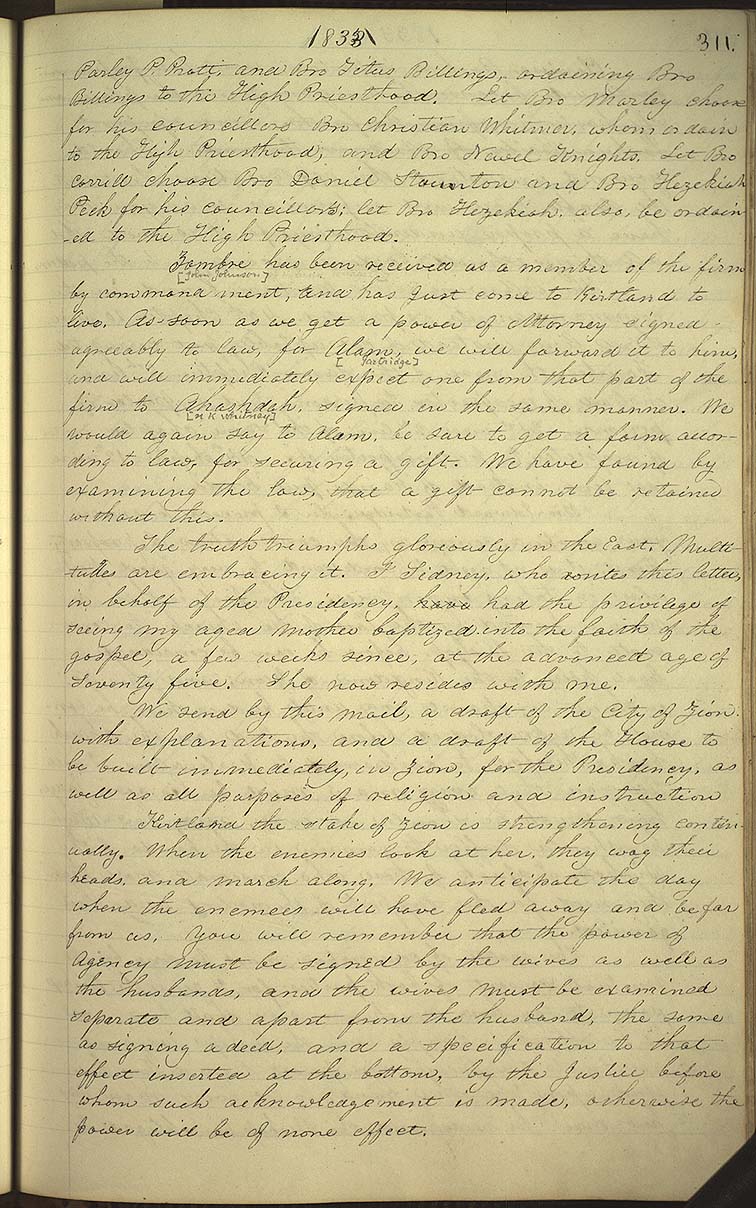 1833
311.
Parley P. Pratt, and Bro Titus Billings, ordaining Bro
Billings to the High Priesthood. Let Bro Morley choose
for his councillors Bro Christian Whitmer, whom ordain
to the High Priesthood, and Bro Newel Knights. Let Bro
Corrill choose Bro Daniel Staunton and Bro Hezekiah
Peck for his councillors; let Bro Hezekiah, also, be ordain-
-ed to the High Priesthood.
Zombre has been received as a member of the firm
[John Johnson]
by command ment, and has just come to Kirtland to
live. As-soon as we get a power of Attorney signed
agreeably to law, for Alam, we will forward it to him,
[Partridge]
and will immediately expect one from that part of the
firm to Ahashdah, signed in the same manner. We
[N K Whitney]
would again say to Alam, be sure to get a form accor-
ding to law, for securing a gift. We have found by
examining the law, that a gift cannot be retained
without this.
The truth triumphs gloriously in the East. Multi-
tudes are embracing it. I Sidney, who writes this letter,
in behalf of the Presidency, have had the privilege of
seeing my aged mother baptized into the faith of the
gospel, a few weeks since, at the advanced age of
Seventy five. She now resides with me.
We send by this mail, a draft of the City of Zion
with explanations, and a draft of the House to
be built immediately, in Zion, for the Presidency, as
well as all purposes of religion and instruction
Kirtland the stake of Zion is strengthening contin-
ually. When the enemies look at her, they wag their
heads, and march along. We anticipate the day
when the enemies will have fled away and be far
from us. You will remember that the power of
Agency must be signed by the wives as well as
the husbands, and the wives must be examined
separate and apart from the husband, the same
as signing a deed, and a specification to that
effect inserted at the bottom, by the Justice before
whom such acknowledgement is made, otherwise the
power will be of none effect.